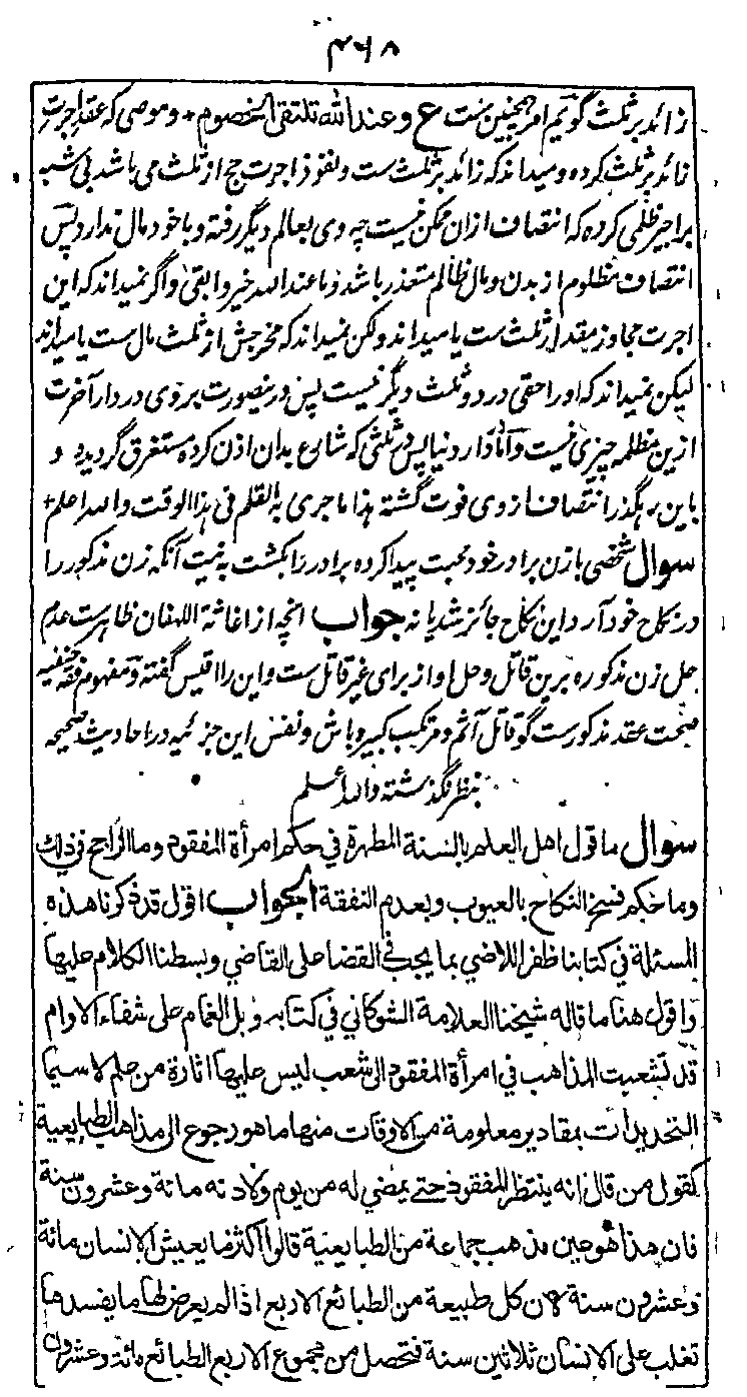 ۴۶۸
زائد بر ثلث گویم امر همچنین ست ع وعند الله تلتقی الخصوم + و موصی که عقد اجرت
زائد بر ثلث کرده و میداند که زائد بر ثلث ست و نفوذ اجرت حج از ثلث می باشد بی شبه
بر اجیر ظلمی کرده که انتصاف ازان ممکن نیست چه وی بعالم دیگر رفته و با خود مال ندارد پس
انتصاف مظلوم از بدن و مال ظالم متعذر باشد وما عند الله خیر وابقی و اگر نمیداند که این
اجرت مجاوز مقدار ثلث ست یا میداند ولکن نمیداند که مخرجش از ثلث مال ست یا میداند
لیکن نمیداند که او را حقی در دو ثلث دیگر نیست پس درینصورت بر وی در دار آخرت
ازین مظلمه چیزی نیست و اما دار دنیا پس در ثلثی که شارع بدان اذن کرده مستغرق گردیده و
باین رهگذر انتصاف از وی فوت گشته هذا ما جری به القلم فی هذا الوقت والله اعلم +
سوال شخصی با زن برادر خود محبت پیدا کرده برادر را بکشت به نیت آنکه زن مذکور را
در نکاح خود آرد این نکاح جائز شد یا نه جواب انچه از اغاثة اللهفان ظاهرست عدم
حل زن مذکوره برین قاتل و حل او از برای غیر قاتل ست و این را اقیس گفته و مفهوم فقه حنفیه
صحت عقد مذکورست گو قاتل آثم و مرتکب کبیره باش و نفس این جزئیه در احادیث صحیحه
بنظر نگذشته والله اعلم
سوال ما قول اهل العلم بالسنة المطهرة في حكم امرأة المفقود وما الراجح في ذلك
وما حكم فسخ النكاح بالعيوب وبعدم النفقة الجواب اقول قد ذكرنا هذه
المسئلة في كتابنا ظفر اللاضي بما يجب في القضا على القاضي وبسطنا الكلام عليها
واقول هنا ما قاله شيخنا العلامة الشوكاني في كتابه وبل الغمام على شفاء الاوام
قد تشعبت المذاهب في امرأة المفقود الى شعب ليس عليها اثارة من علم لا سيما
التحديدات بمقادير معلومة من الاوقات منها ما هو رجوع الى مذاهب الطبايعية
كقول من قال انه ينتظر المفقود حتى يمضي له من يوم ولادته مائة وعشرون سنة
فان هذا هو عين مذهب جماعة من الطبايعية قالوا اكثر ما يعيش الانسان مائة
وعشرون سنة لان كل طبيعة من الطبائع الاربع اذا لم يعرض لها ما يفسدها
تغلب على الانسان ثلاثين سنة فتحصل من مجموع الاربع الطبائع مائة وعشرون